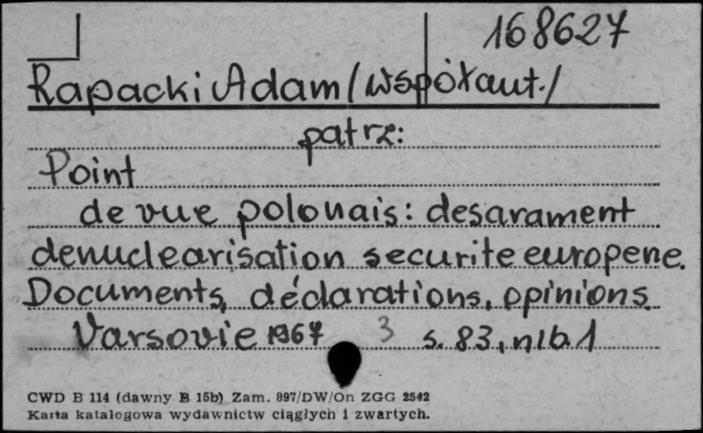 168627
Rapacki Adam /współaut./
patrz:
Point
de vue polonais: desarament
denuclearisation securite europene.
Documents, déclarations, opinions.
Varsovie 1967 3 s. 83, nlb. 1
CWD B 114 (dawny B 15b) Zam. 897/DW/On ZGG 2542
Karta katalogowa wydawnictw ciągłych i zwartych.